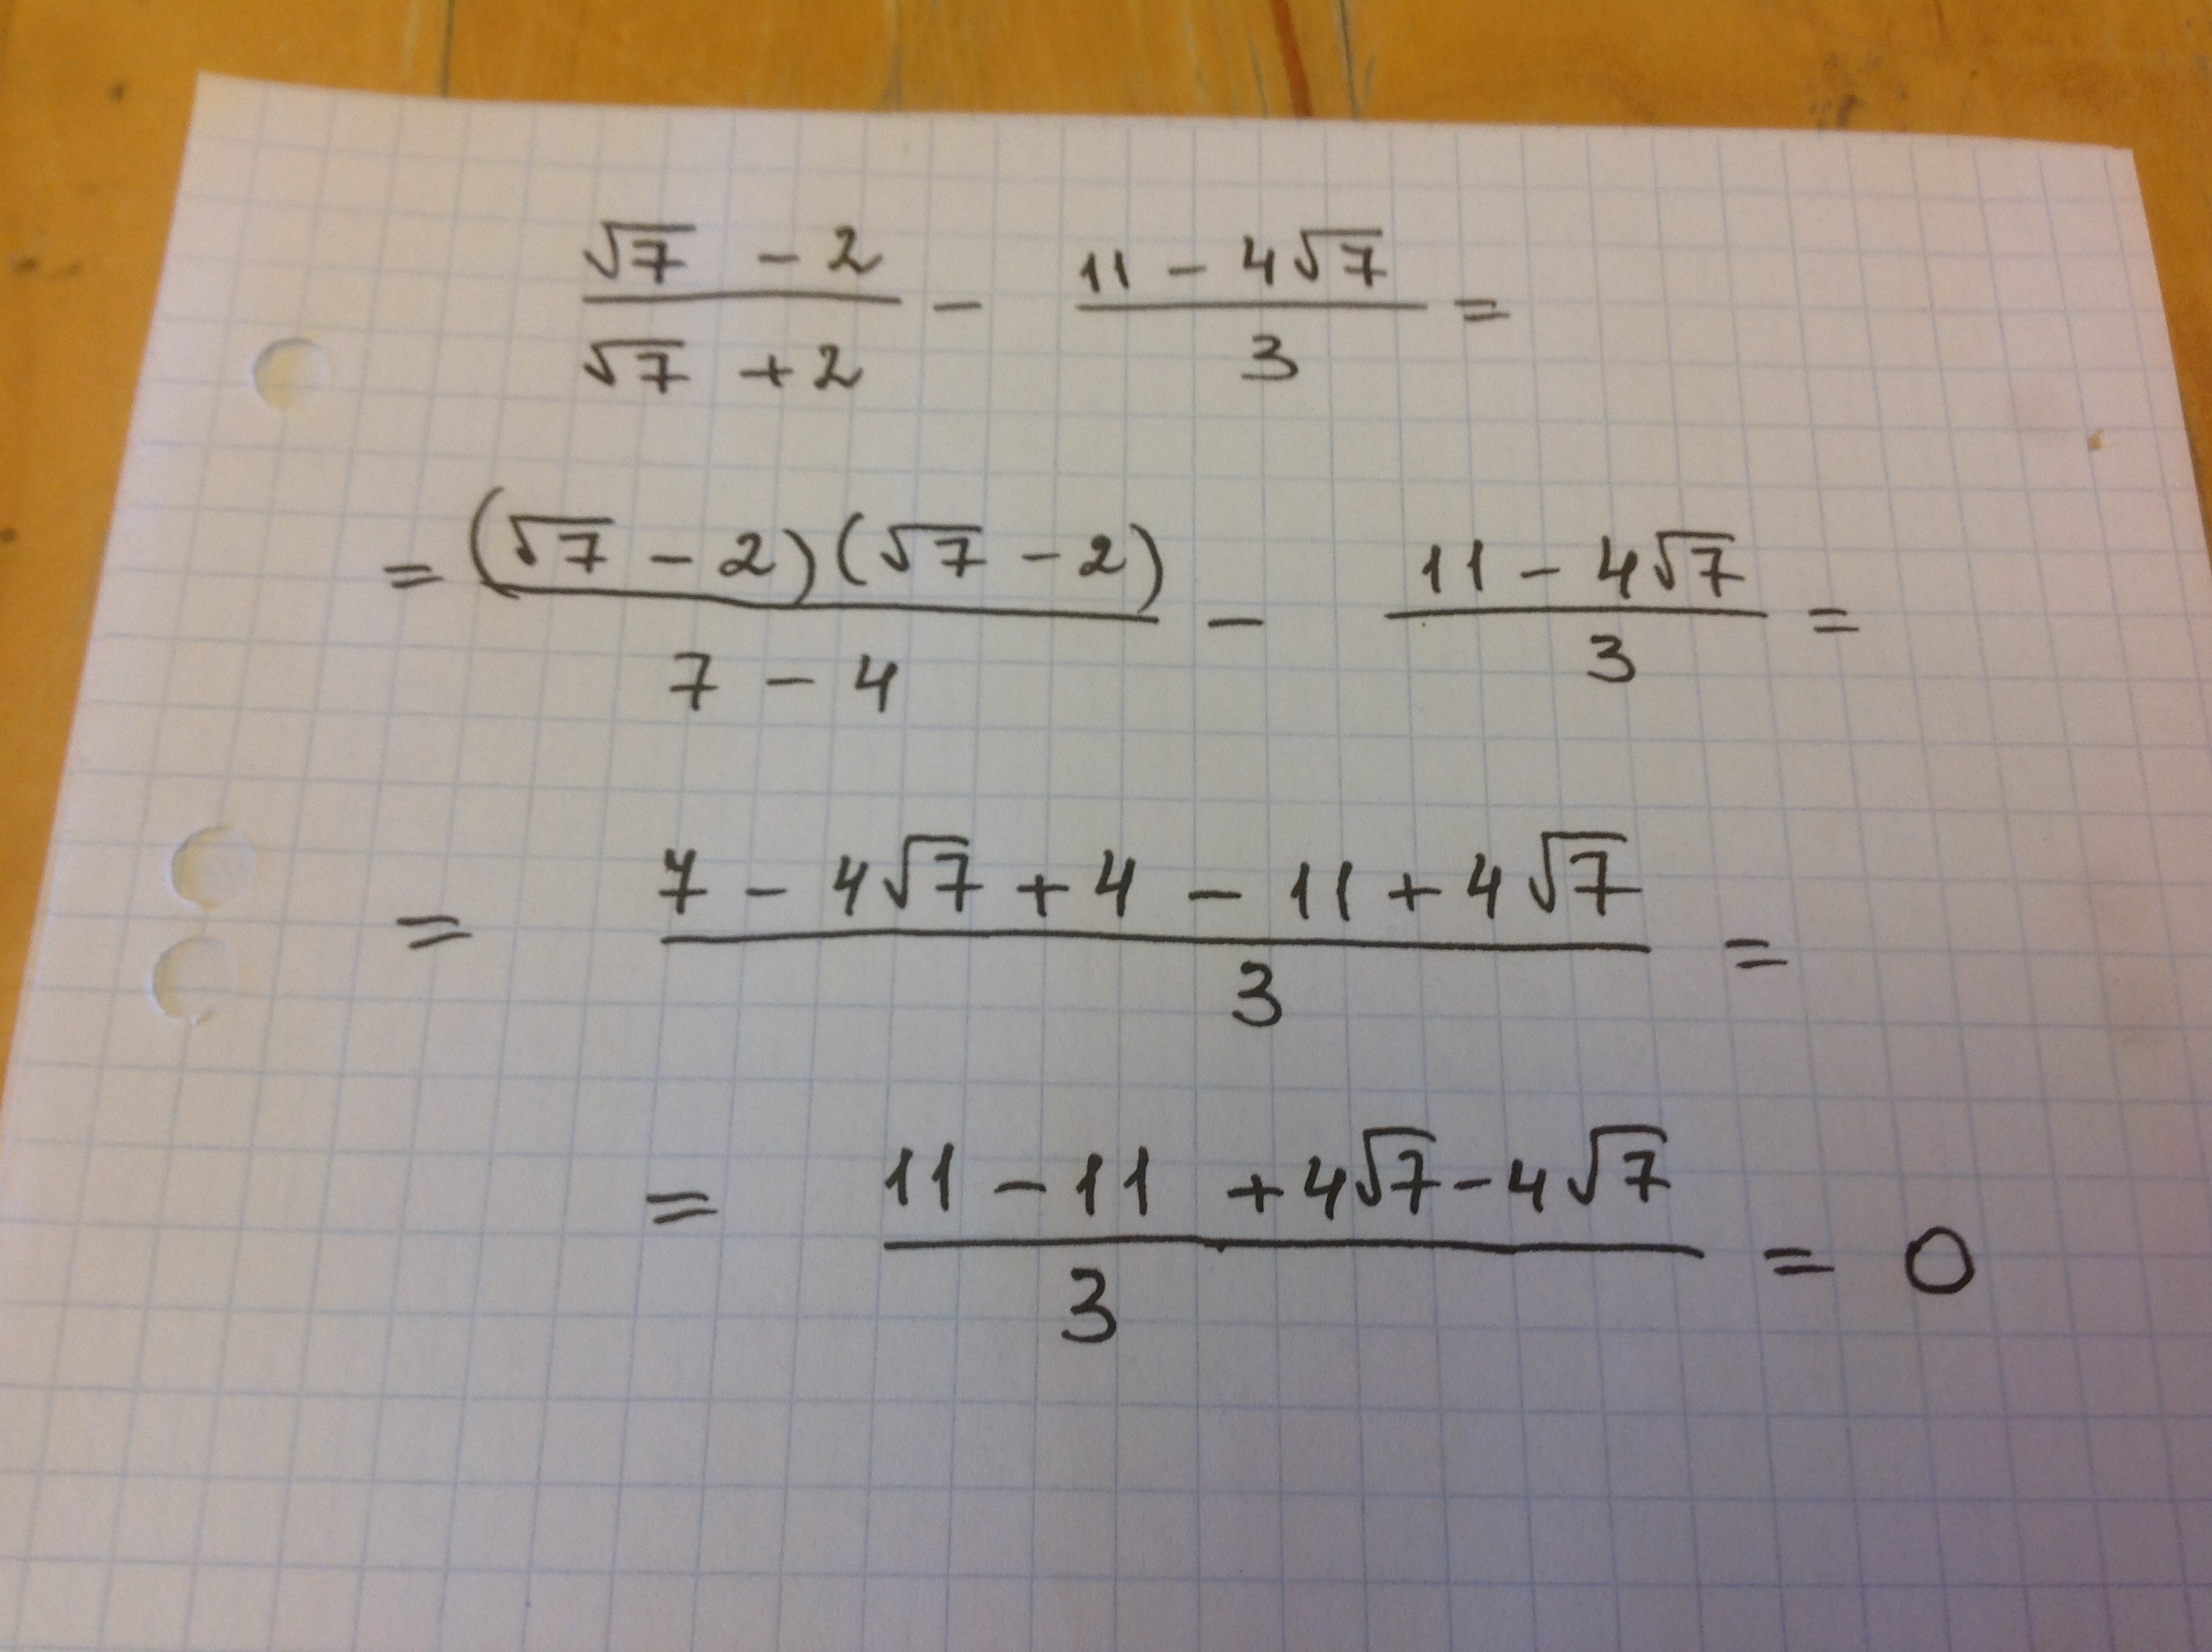 (√7 - 2)/(√7 + 2) - (11 - 4√7)/3 =
= ((√7 - 2)(√7 - 2))/(7 - 4) - (11 - 4√7)/3 =
= (7 - 4√7 + 4 - 11 + 4√7)/3 =
= (11 - 11 + 4√7 - 4√7)/3 = 0